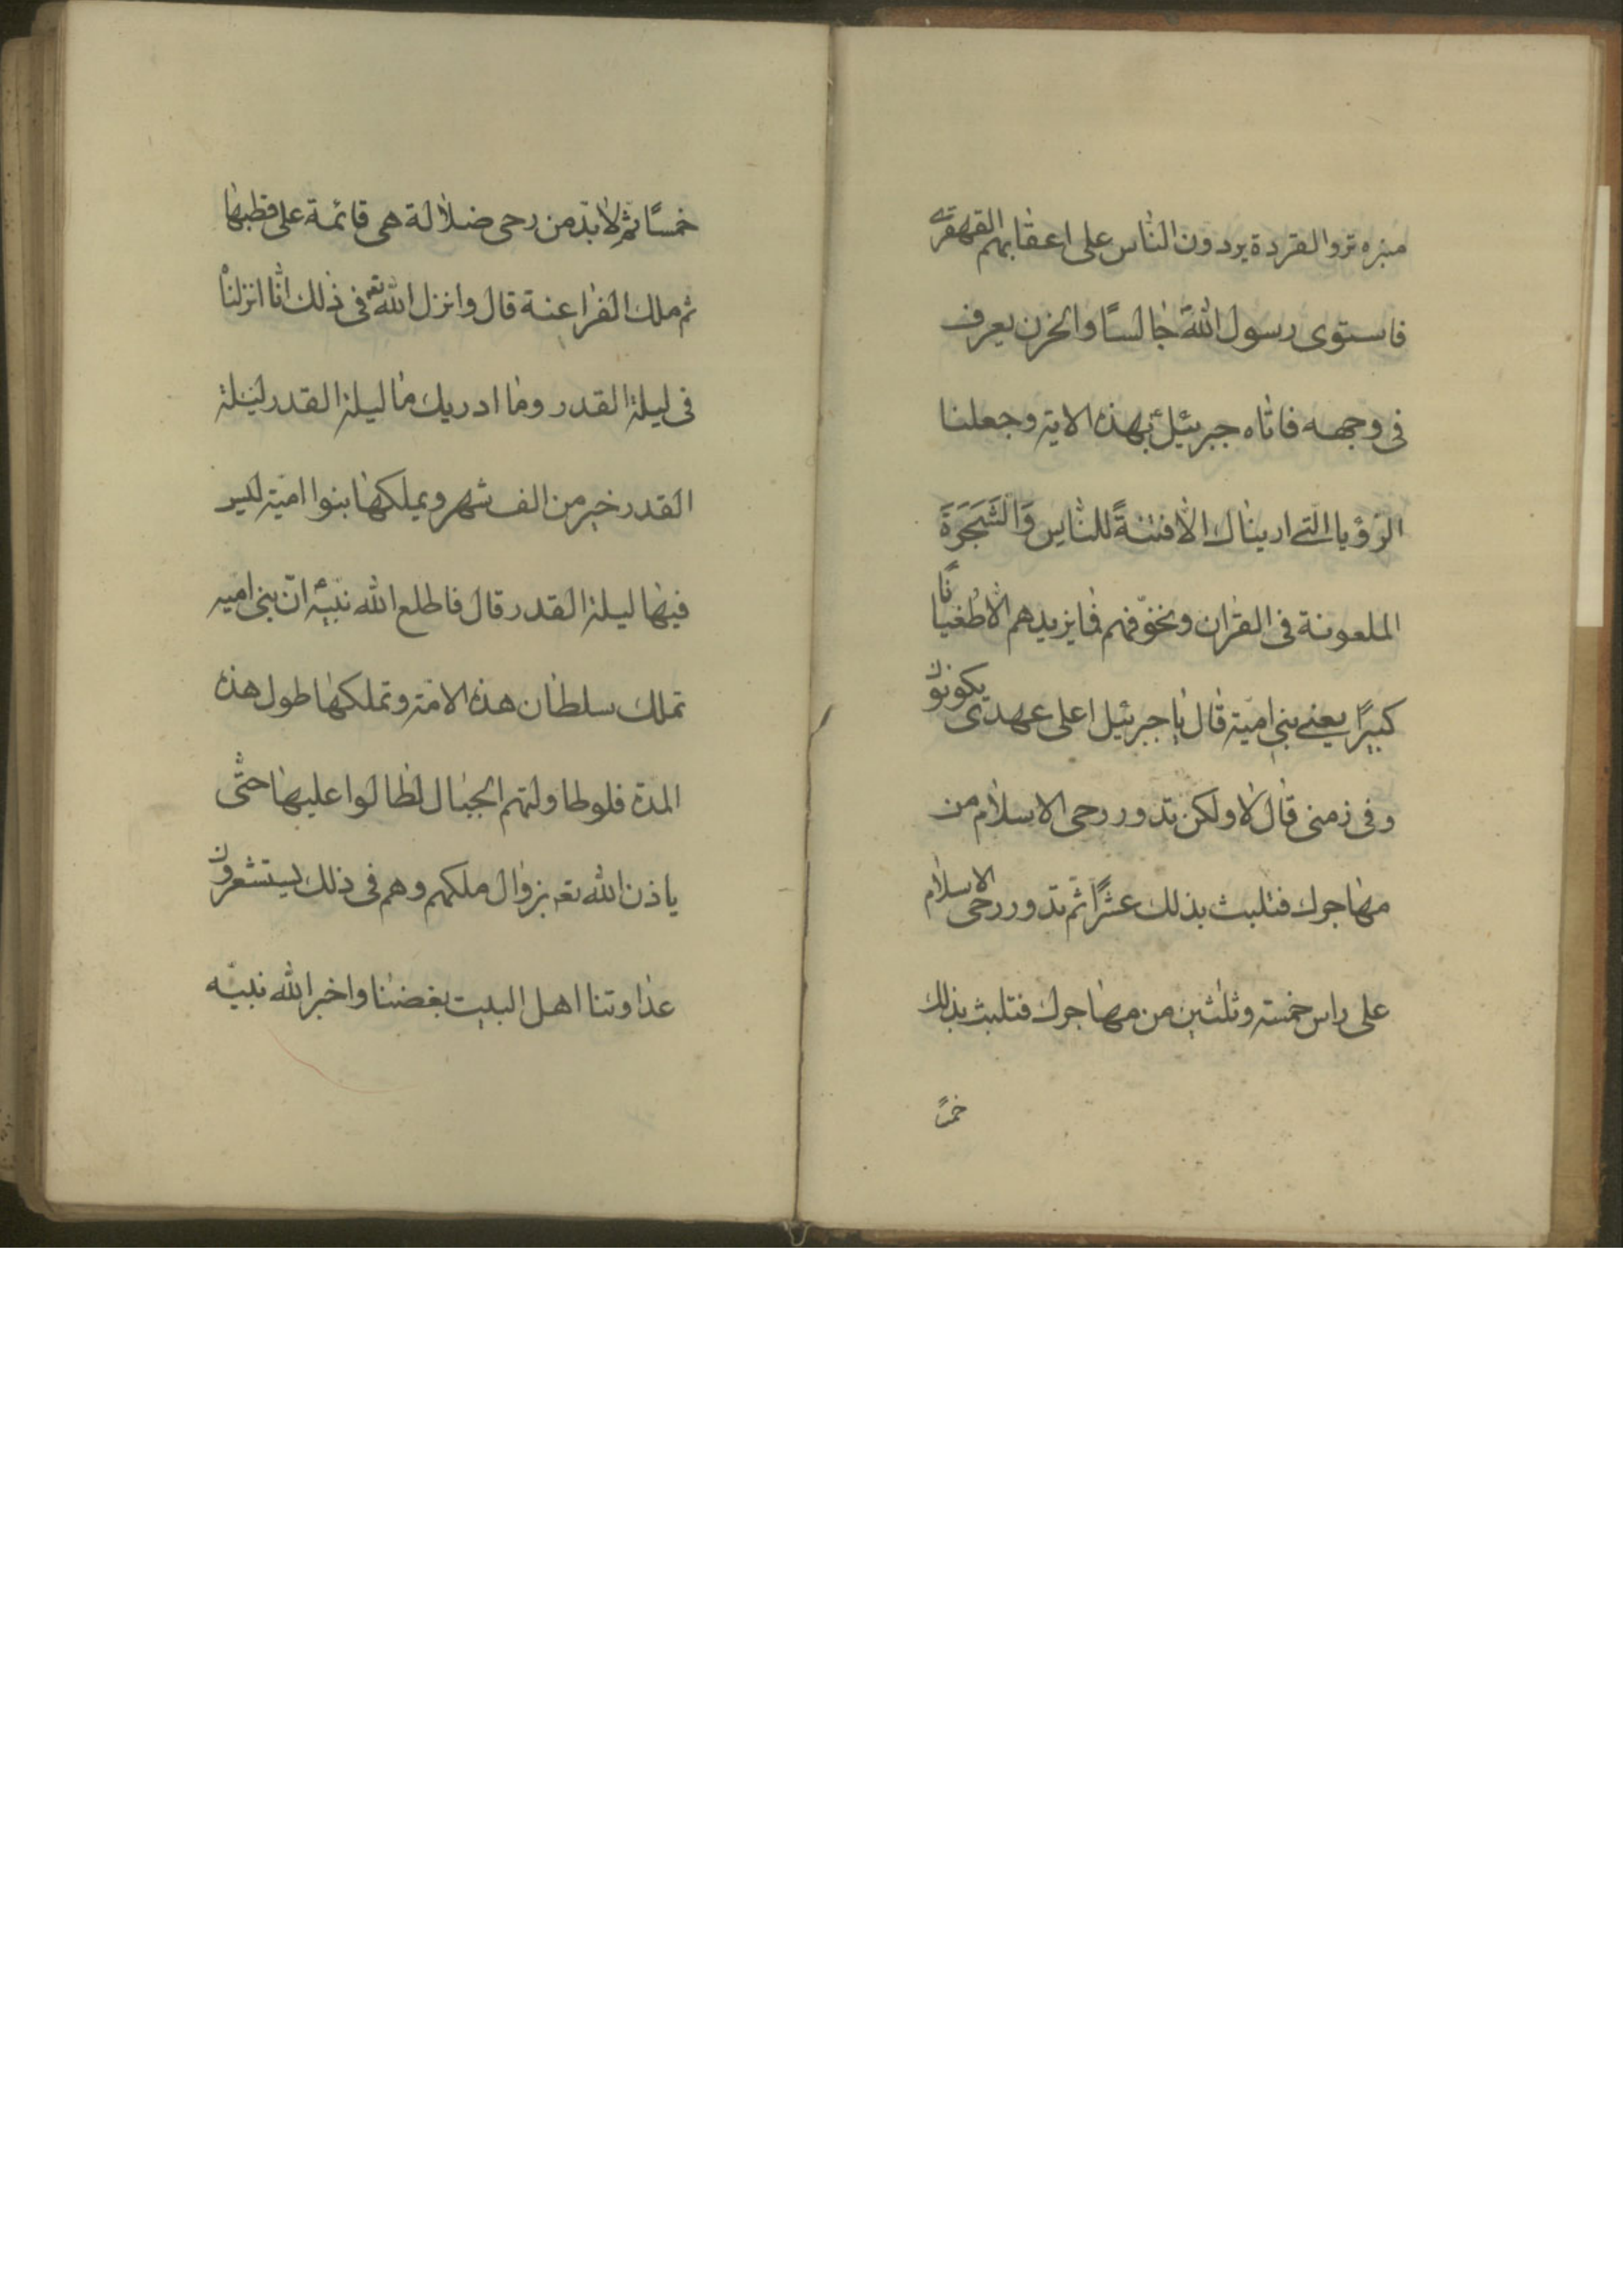 منبره نزو القردة يردون الناس على اعقابهم القهقرى
فاستوى رسول الله جالسًا والحزن يعرف
فى وجهه فاتاه جبرئيل بهذه الاية وجعلنا
الرؤيا التى اريناك الا فتنةً للناس وَالشَجَرَةَ
الملعونة فى القران ونخوّفهم فما يزيدهم الا طغيانًا
كبيرًا يعنى بنى امية قال يا جبرئيل اعلى عهدى يكونون
وفى زمنى قال لا ولكن تدور رحى الاسلام من
مهاجرك فتلبث بذلك عشرًا ثم تدور رحى الاسلام
على راس خمسة وثلثين من مهاجرك فتلبث بذلك
خمسًا
خمسًا ثم لا بدّ من رحى ضلالة هى قائمة على قطبها
ثم ملك الفراعنة قال وانزل الله تعه فى ذلك انا انزلناه
فى ليلة القدر وما ادريك ما ليلة القدر ليلة
القدر خير من الف شهر ويملكها بنوا اميّة ليس
فيها ليلة القدر قال فاطلع الله نبيه انّ بنى اميه
تملك سلطان هذه الامّة وتملكها طول هذه
المدة فلو طاولتهم الجبال لطالوا عليها حتّى
ياذن الله تعه بزوال ملكهم وهم فى ذلك يستشعرون
عداوتنا اهل البيت بغضنا واخبر الله نبيّه